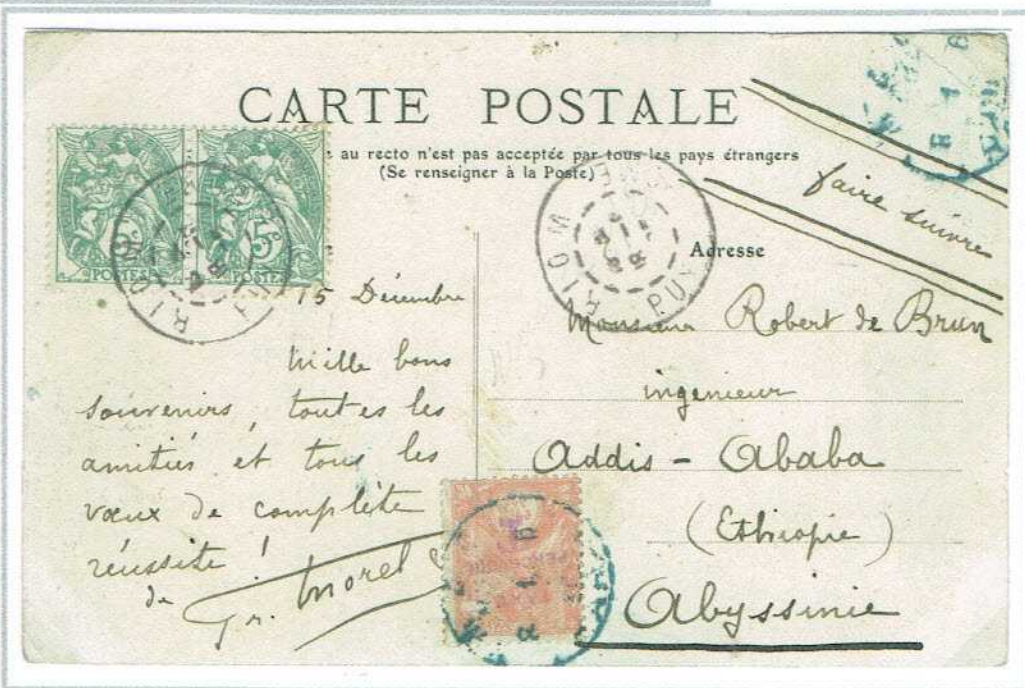 CARTE POSTALE
au recto n'est pas acceptée par tous les pays étrangers
(Se renseigner à la Poste)
faire suivre
5c
POSTES
POSTES
RIOM
RIOM
PUY
Adresse
15 Décembre
Mille bons
souvenirs, toutes les
amitiés et tous les
vœux de complète
réussite !
de Gr. Morel
Monsieur Robert de Brun
ingenieur
Addis-Ababa
(Ethiopie)
Abyssinie